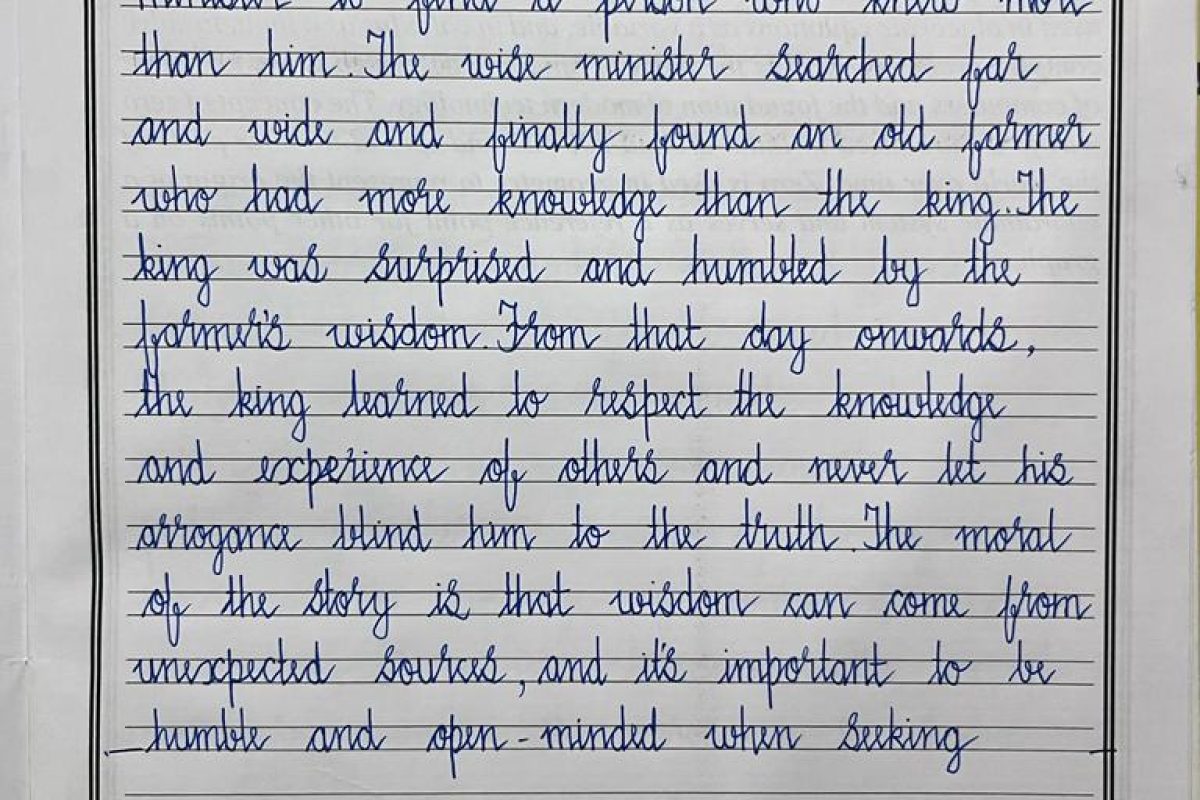 minister to find a person who knew more
than him. The wise minister searched far
and wide and finally found an old farmer
who had more knowledge than the king. The
king was surprised and humbled by the
farmer's wisdom. From that day onwards,
the king learned to respect the knowledge
and experience of others and never let his
arrogance blind him to the truth. The moral
of the story is that wisdom can come from
unexpected sources, and it's important to be
humble and open-minded when seeking